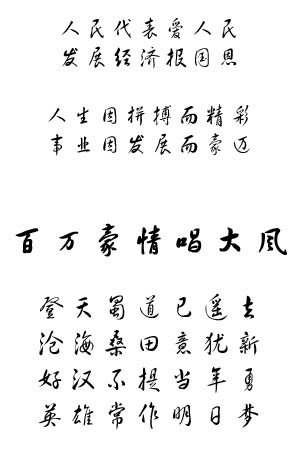 人民代表爱人民
发展经济报国恩
人生因拼搏而精彩
事业因发展而豪迈
百万豪情唱大风
登天蜀道已遥去
沧海桑田意犹新
好汉不提当年勇
英雄常作明日梦